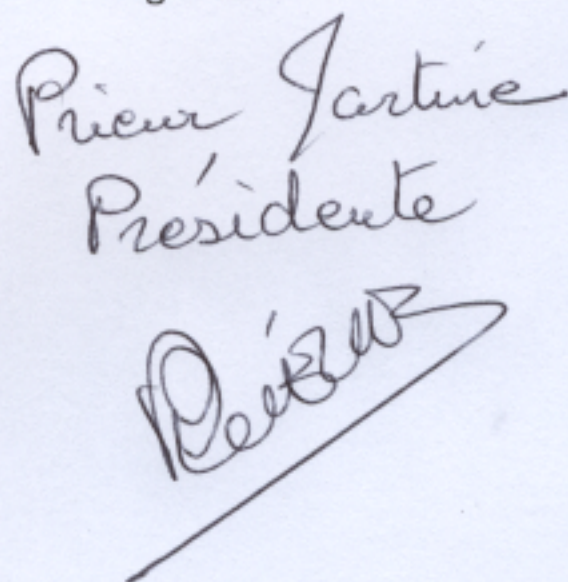 Prieur Martine
Présidente